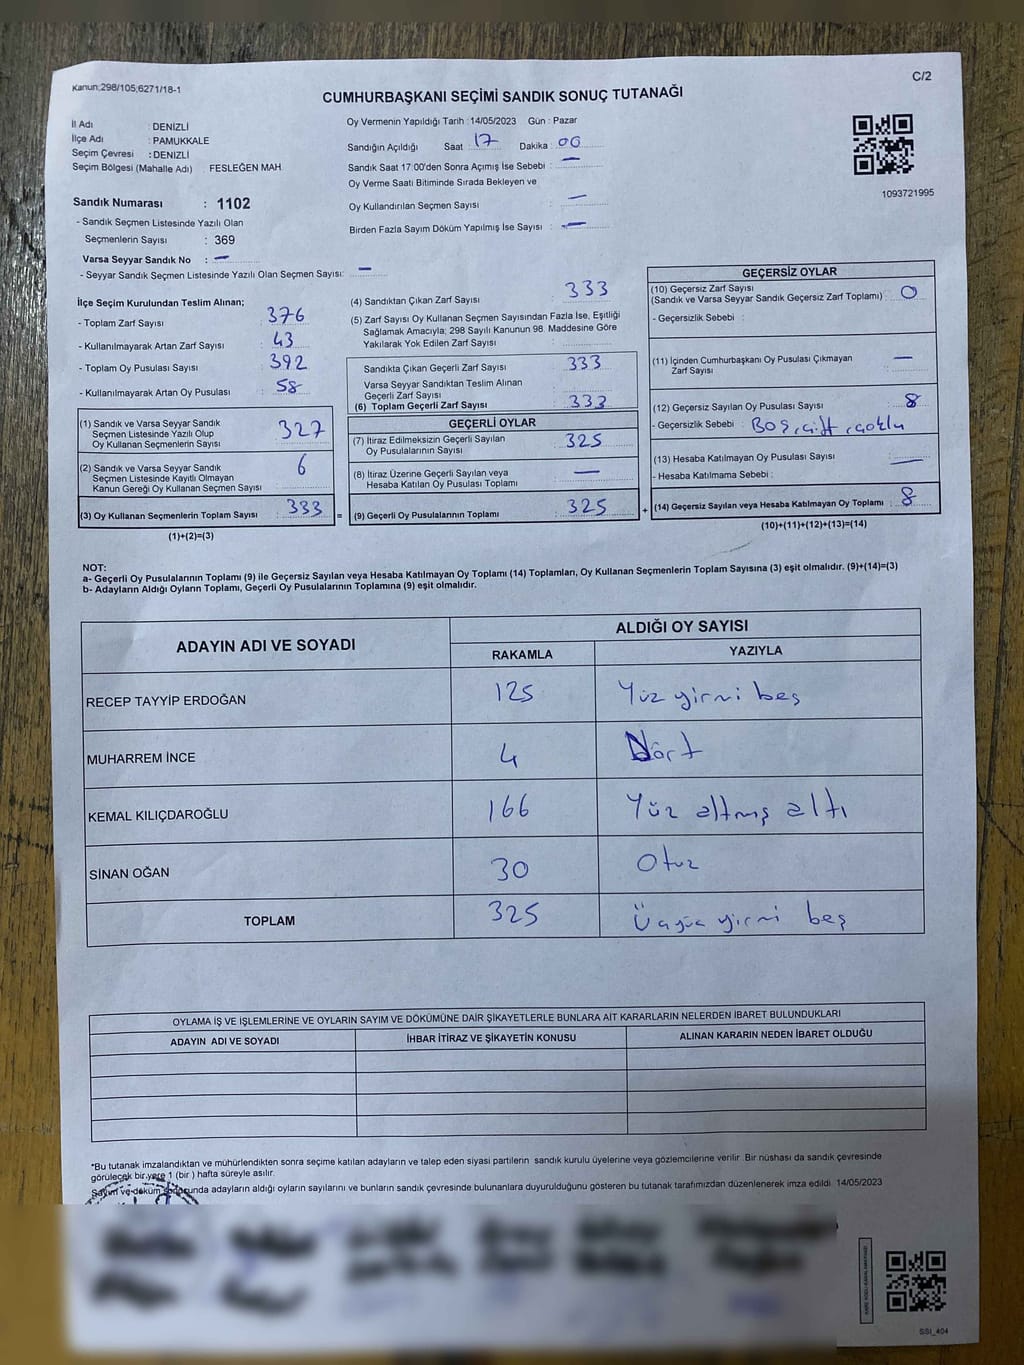 Kanun;298/105;6271/18-1
C/2
CUMHURBAŞKANI SEÇİMİ SANDIK SONUÇ TUTANAĞI
İl Adı : DENİZLİ
İlçe Adı : PAMUKKALE
Seçim Çevresi : DENİZLİ
Seçim Bölgesi (Mahalle Adı) : FESLEĞEN MAH.
Sandık Numarası : 1102
- Sandık Seçmen Listesinde Yazılı Olan
Seçmenlerin Sayısı : 369
Varsa Seyyar Sandık No : —
- Seyyar Sandık Seçmen Listesinde Yazılı Olan Seçmen Sayısı: —
Oy Vermenin Yapıldığı Tarih :14/05/2023 Gün : Pazar
Sandığın Açıldığı Saat : 17 Dakika : 00
Sandık Saat 17:00'den Sonra Açımış İse Sebebi : —
Oy Verme Saati Bitiminde Sırada Bekleyen ve
Oy Kullandırılan Seçmen Sayısı : —
Birden Fazla Sayım Döküm Yapılmış İse Sayısı : —
1093721995
İlçe Seçim Kurulundan Teslim Alınan;
- Toplam Zarf Sayısı : 376
- Kullanılmayarak Artan Zarf Sayısı : 43
- Toplam Oy Pusulası Sayısı : 392
- Kullanılmayarak Artan Oy Pusulası : 58
(1) Sandık ve Varsa Seyyar Sandık
Seçmen Listesinde Yazılı Olup
Oy Kullanan Seçmenlerin Sayısı : 327
(2) Sandık ve Varsa Seyyar Sandık
Seçmen Listesinde Kayıtlı Olmayan
Kanun Gereği Oy Kullanan Seçmen Sayısı : 6
(3) Oy Kullanan Seçmenlerin Toplam Sayısı : 333 =
(1)+(2)=(3)
(4) Sandıktan Çıkan Zarf Sayısı : 333
(5) Zarf Sayısı Oy Kullanan Seçmen Sayısından Fazla İse, Eşitliği
Sağlamak Amacıyla; 298 Sayılı Kanunun 98. Maddesine Göre
Yakılarak Yok Edilen Zarf Sayısı :
Sandıkta Çıkan Geçerli Zarf Sayısı : 333
Varsa Seyyar Sandıktan Teslim Alınan
Geçerli Zarf Sayısı :
(6) Toplam Geçerli Zarf Sayısı : 333
GEÇERLİ OYLAR
(7) İtiraz Edilmeksizin Geçerli Sayılan
Oy Pusulalarının Sayısı : 325
(8) İtiraz Üzerine Geçerli Sayılan veya
Hesaba Katılan Oy Pusulası Toplamı : —
(9) Geçerli Oy Pusulalarının Toplamı : 325 +
GEÇERSİZ OYLAR
(10) Geçersiz Zarf Sayısı
(Sandık ve Varsa Seyyar Sandık Geçersiz Zarf Toplamı) : 0
- Geçersizlik Sebebi :
(11) İçinden Cumhurbaşkanı Oy Pusulası Çıkmayan
Zarf Sayısı : —
(12) Geçersiz Sayılan Oy Pusulası Sayısı : 8
- Geçersizlik Sebebi : Boş, çift, çoklu
(13) Hesaba Katılmayan Oy Pusulası Sayısı : —
- Hesaba Katılmama Sebebi :
(14) Geçersiz Sayılan veya Hesaba Katılmayan Oy Toplamı : 8
(10)+(11)+(12)+(13)=(14)
NOT:
a- Geçerli Oy Pusulalarının Toplamı (9) ile Geçersiz Sayılan veya Hesaba Katılmayan Oy Toplamı (14) Toplamları, Oy Kullanan Seçmenlerin Toplam Sayısına (3) eşit olmalıdır. (9)+(14)=(3)
b- Adayların Aldığı Oyların Toplamı, Geçerli Oy Pusulalarının Toplamına (9) eşit olmalıdır.
ADAYIN ADI VE SOYADI ALDIĞI OY SAYISI
RAKAMLA YAZIYLA
RECEP TAYYİP ERDOĞAN 125 Yüz yirmi beş
MUHARREM İNCE 4 Dört
KEMAL KILIÇDAROĞLU 166 Yüz altmış altı
SİNAN OĞAN 30 Otuz
TOPLAM 325 Üçyüz yirmi beş
OYLAMA İŞ VE İŞLEMLERİNE VE OYLARIN SAYIM VE DÖKÜMÜNE DAİR ŞİKAYETLERLE BUNLARA AİT KARARLARIN NELERDEN İBARET BULUNDUKLARI
ADAYIN ADI VE SOYADI İHBAR İTİRAZ VE ŞİKAYETİN KONUSU ALINAN KARARIN NEDEN İBARET OLDUĞU
*Bu tutanak imzalandıktan ve mühürlendikten sonra seçime katılan adayların ve talep eden siyasi partilerin sandık kurulu üyelerine veya gözlemcilerine verilir. Bir nüshası da sandık çevresinde
görülecek bir yere 1 (bir ) hafta süreyle asılır.
Sayım ve döküm sonucunda adayların aldığı oyların sayılarını ve bunların sandık çevresinde bulunanlara duyurulduğunu gösteren bu tutanak tarafımızdan düzenlenerek imza edildi. 14/05/2023
SSI_404